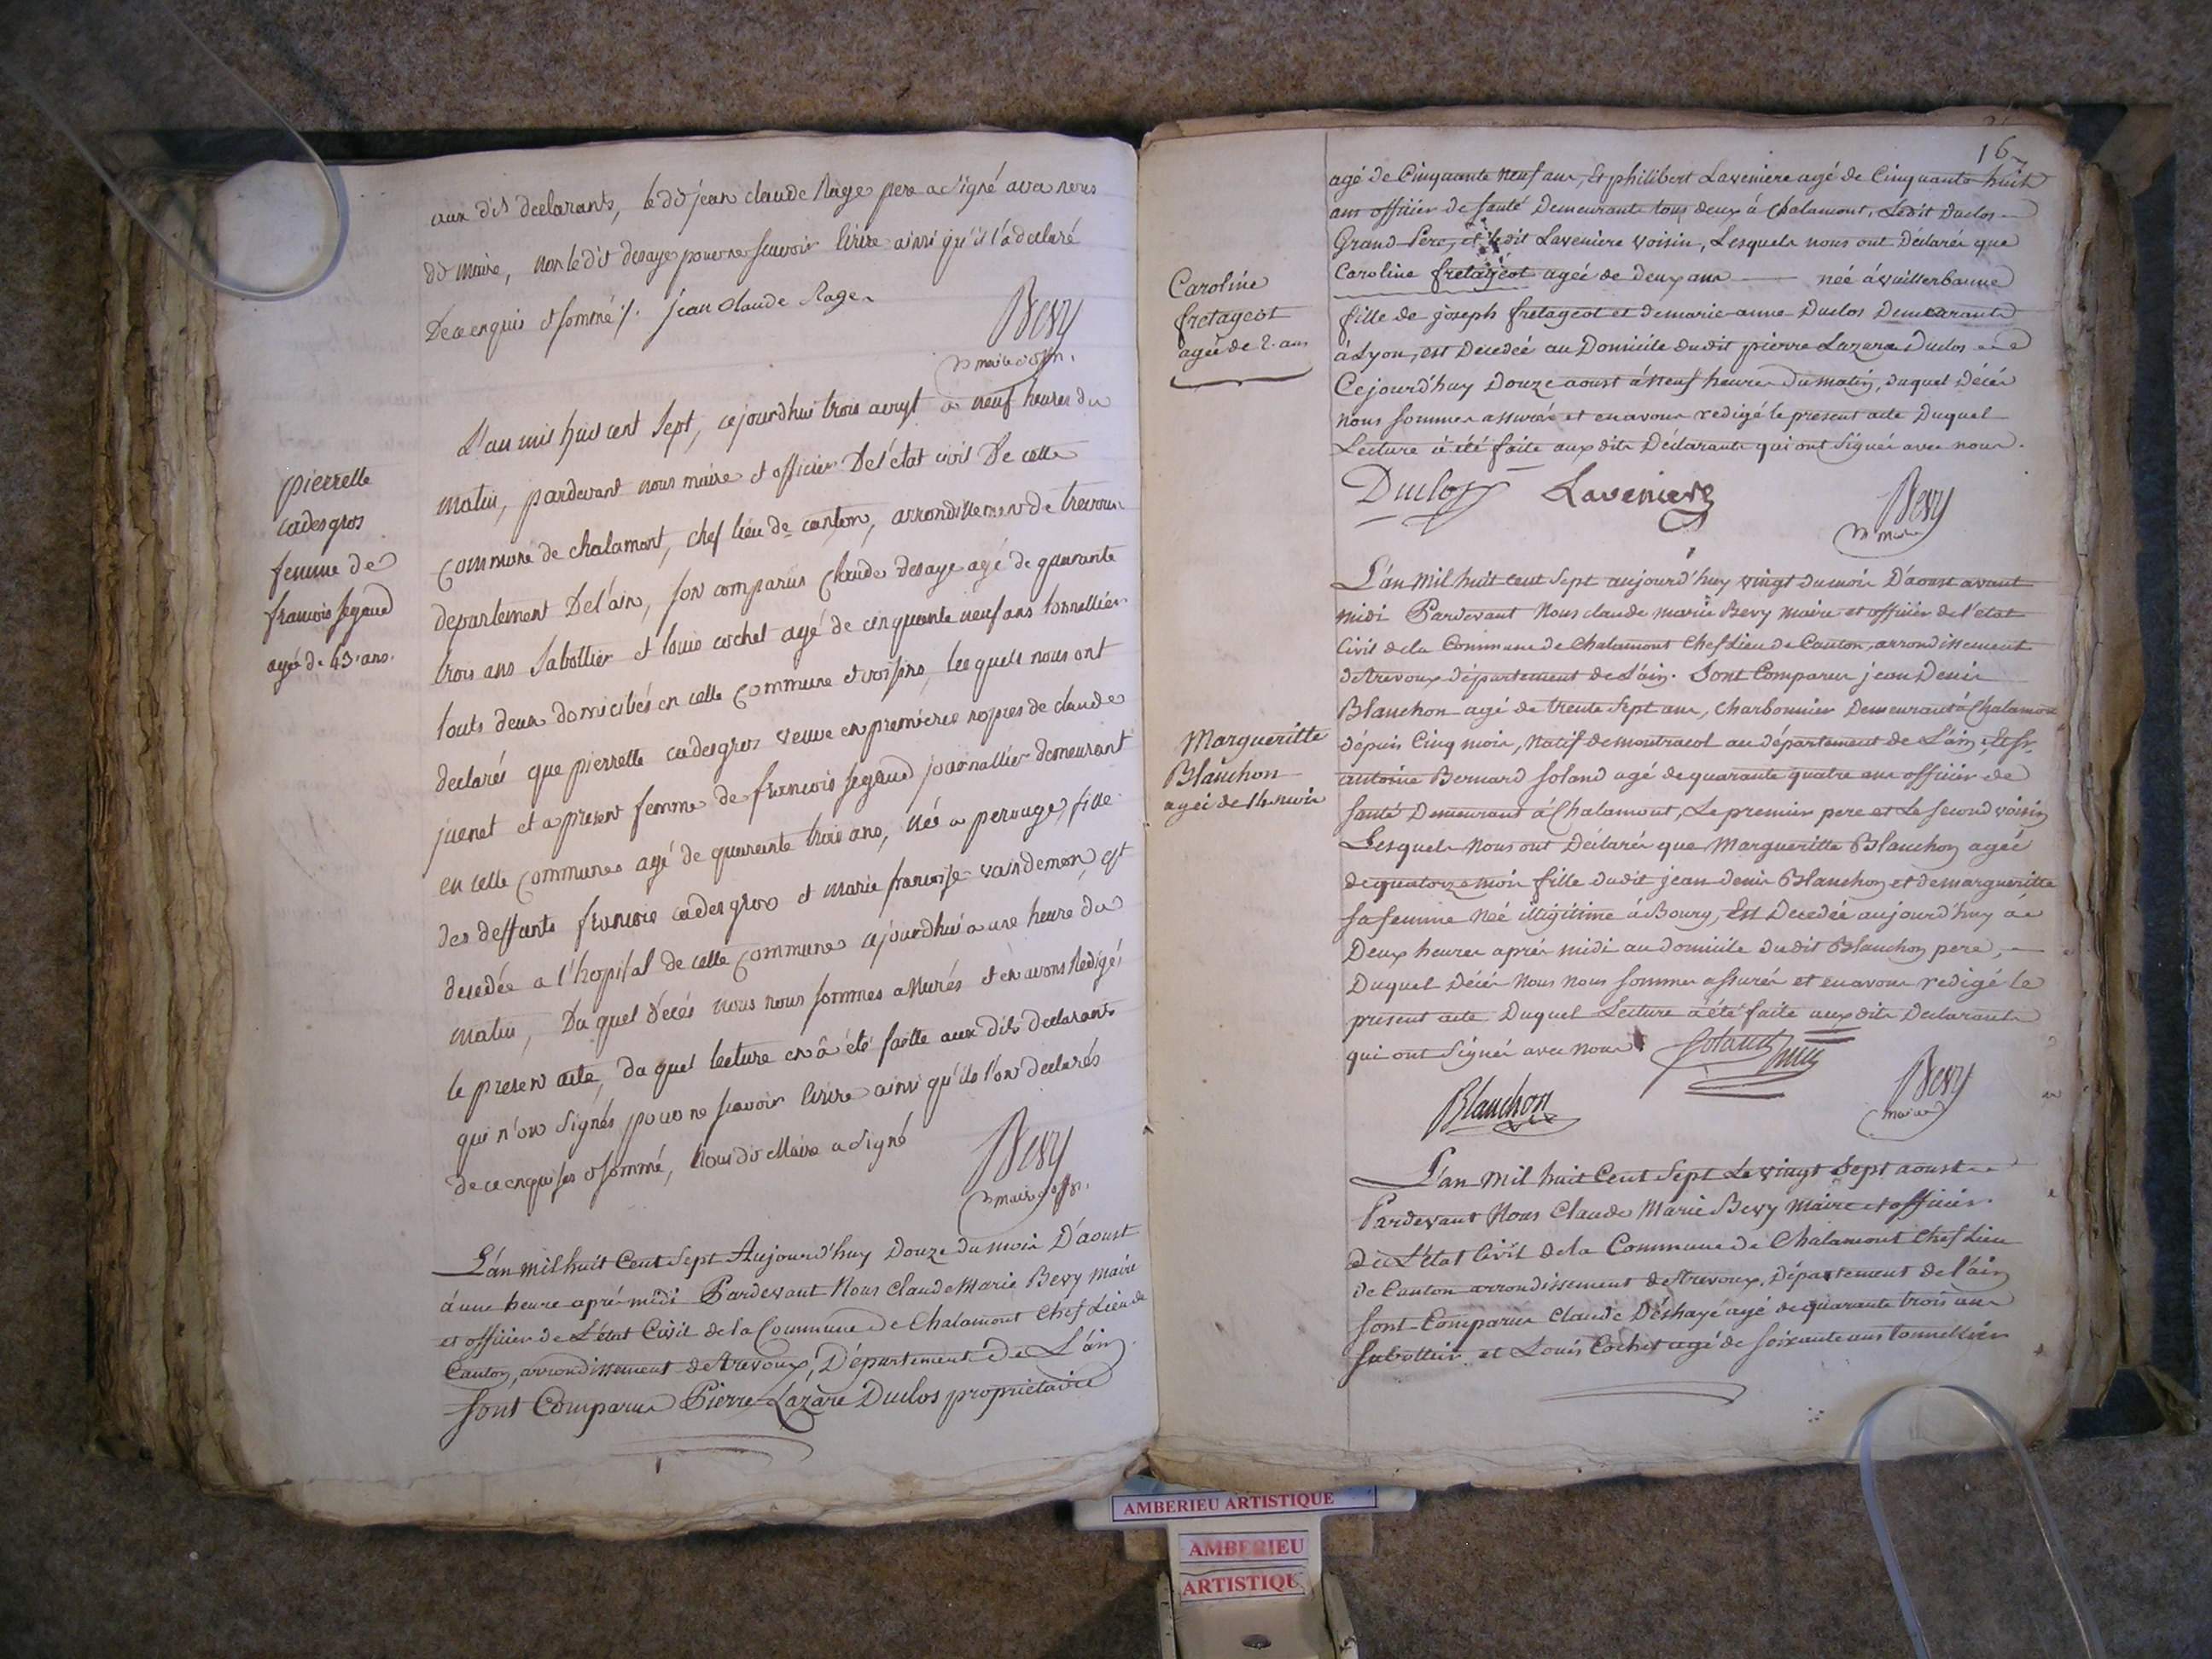 aux dits declarants, le dit jean claude Rage pere a signé avec nous
dit maire, non le dit desaye pour ne scavoir ecrire ainsi qu'il l'a declaré
De ce enquis et sommé /. jean claude Rage
Bevy
maire et offr.
pierrette
cadesgros
femme de
francois segaud
agé de 43 ans.
L'an mil huit cent sept, cejourdhui trois aoust a neuf heures du
matin, pardevant nous maire et officier De l'état civil De cette
Commune de chalamont, chef lieu de canton, arrondissement de trevoux
departement De l'ain, son comparus Claude desaye agé de quarante
trois ans Sabottier et louis cochet agé de cinquante neuf ans tonnellier
touts deux domiciliés en cette Commune et voisins, lesquels nous ont
declarés que pierrette cadesgros veuve en premieres nopces de claude
juenet et a present femme de francois segaud journallier demeurant
en cette Commune agé de quarante trois ans, née a perouge, fille
des deffunts francois cadesgros et marie francoise vaindemon, est
decedée a l'hopital de cette Commune cejourdhui a une heure du
matin, Du quel decés nous nous sommes assurés et en avons Redigés
le presen acte, du quel lecture en â été faitte aux dits declarants
qui n'on signés pour ne scavoir ecrire ainsi qu'ils l'on declarés
de ce enquises et sommé, Nous dit Maire a signé
Bevy
maire et offr.
L'an mil huit Cent Sept Aujourd'huy Douze du mois D'aoust
á une heure aprés midi Pardevant Nous Claude Marie Bevy Maire
et officier de L'état Civil de la Commune de Chalamont Chef Lieu de
Canton, arrondissement de trevoux, Département de L'ain
Sont Comparus Pierre Lazare Duclos proprietaire
16
agé de Cinquante neuf ans, Et philibert Laveniere agé de Cinquante huit
ans officier de santé Demeurants tous deux á Chalamont, Ledit Duclos
Grand Pere, et ledit Laveniere voisin, Lesquels nous ont Déclarés que
Caroline fretageot agée de deux ans — neé á villerbanne
fille de joseph fretageot et de marie anne Duclos Demeurants
á Lyon, est Décedeé au Domicile dudit pierre Lazare Duclos
Cejourd'huy Douze aoust á Neuf heures Du matin, duquel Décés
nous sommes assurés et en avons redigé le present acte Duquel
Lecture á été faite aux dits Déclarants qui ont Signés avec nous.
Caroline
fretageot
agée de 2. ans
Duclos Laveniere
Bevy
maire
L'an Mil huit cent Sept aujourd'huy vingt du mois D'aoust avant
midi Pardevant Nous claude marie Bevy maire et officier de l'état
Civil de la Commune de Chalamont Chef Lieu de Canton, arrondissement
de trevoux département de L'ain. Sont Comparus jean Denis
Blanchon agé de trente Sept ans, Charbonnier Demeurant á Chalamont
dépuis Cinq mois, Natif de montracol au département de L'ain, Et Sr.
antoine Bernard Soland agé de quarante quatre ans officier de
Santé Demeurant á Chalamont, Le premier pere et Le second voisin
Lesquels Nous ont Déclarés que Margueritte Blanchon agée
de quatorze mois fille dudit jean denis Blanchon et de margueritte
sa femme Neé illigitime á Bourg, Est Decedeé aujourd'huy á
Deux heures aprés midi au domicile dudit Blanchon pere,
Duquel Décés Nous Nous sommes assurés et en avons redigé le
present acte Duquel Lecture á été faite aux dits Declarants
qui ont Signés avec Nous.
Margueritte
Blanchon
agée de 14 mois
Blanchon
Bevy
maire
L'an Mil huit Cent Sept Le vingt Sept aoust
Pardevant Nous Claude Marie Bevy Maire et officier
de L'état Civil de la Commune de Chalamont Chef Lieu
de Canton arrondissement de trevoux, Département de l'ain
Sont Comparus Claude Déshaye agé de quarante trois ans
Sabottier et Louis Cochet agé de soixante ans tonnellier
AMBERIEU ARTISTIQUE
AMBERIEU
ARTISTIQUE